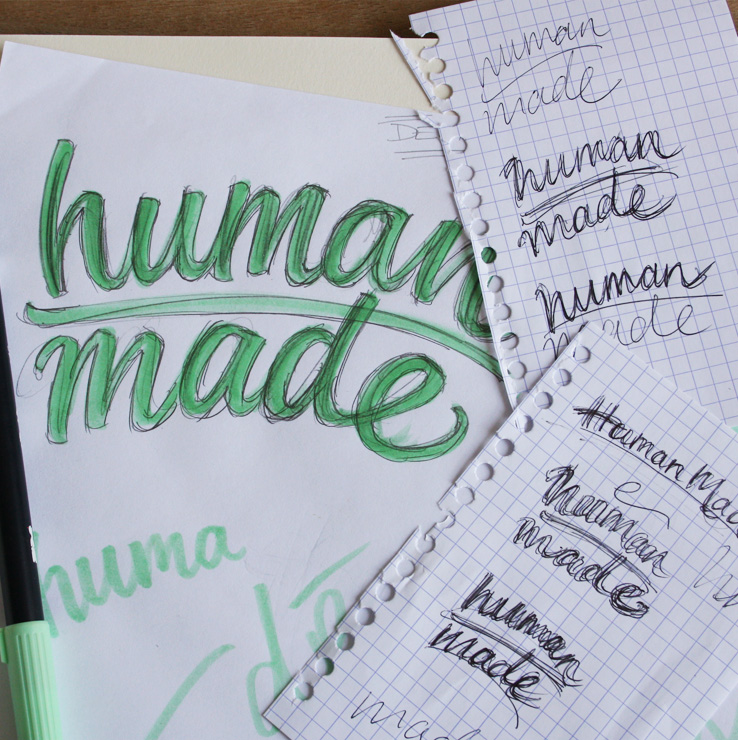 human
made
huma
human
made
human
made
human
made
Human Mad
human
made
human
made
mad